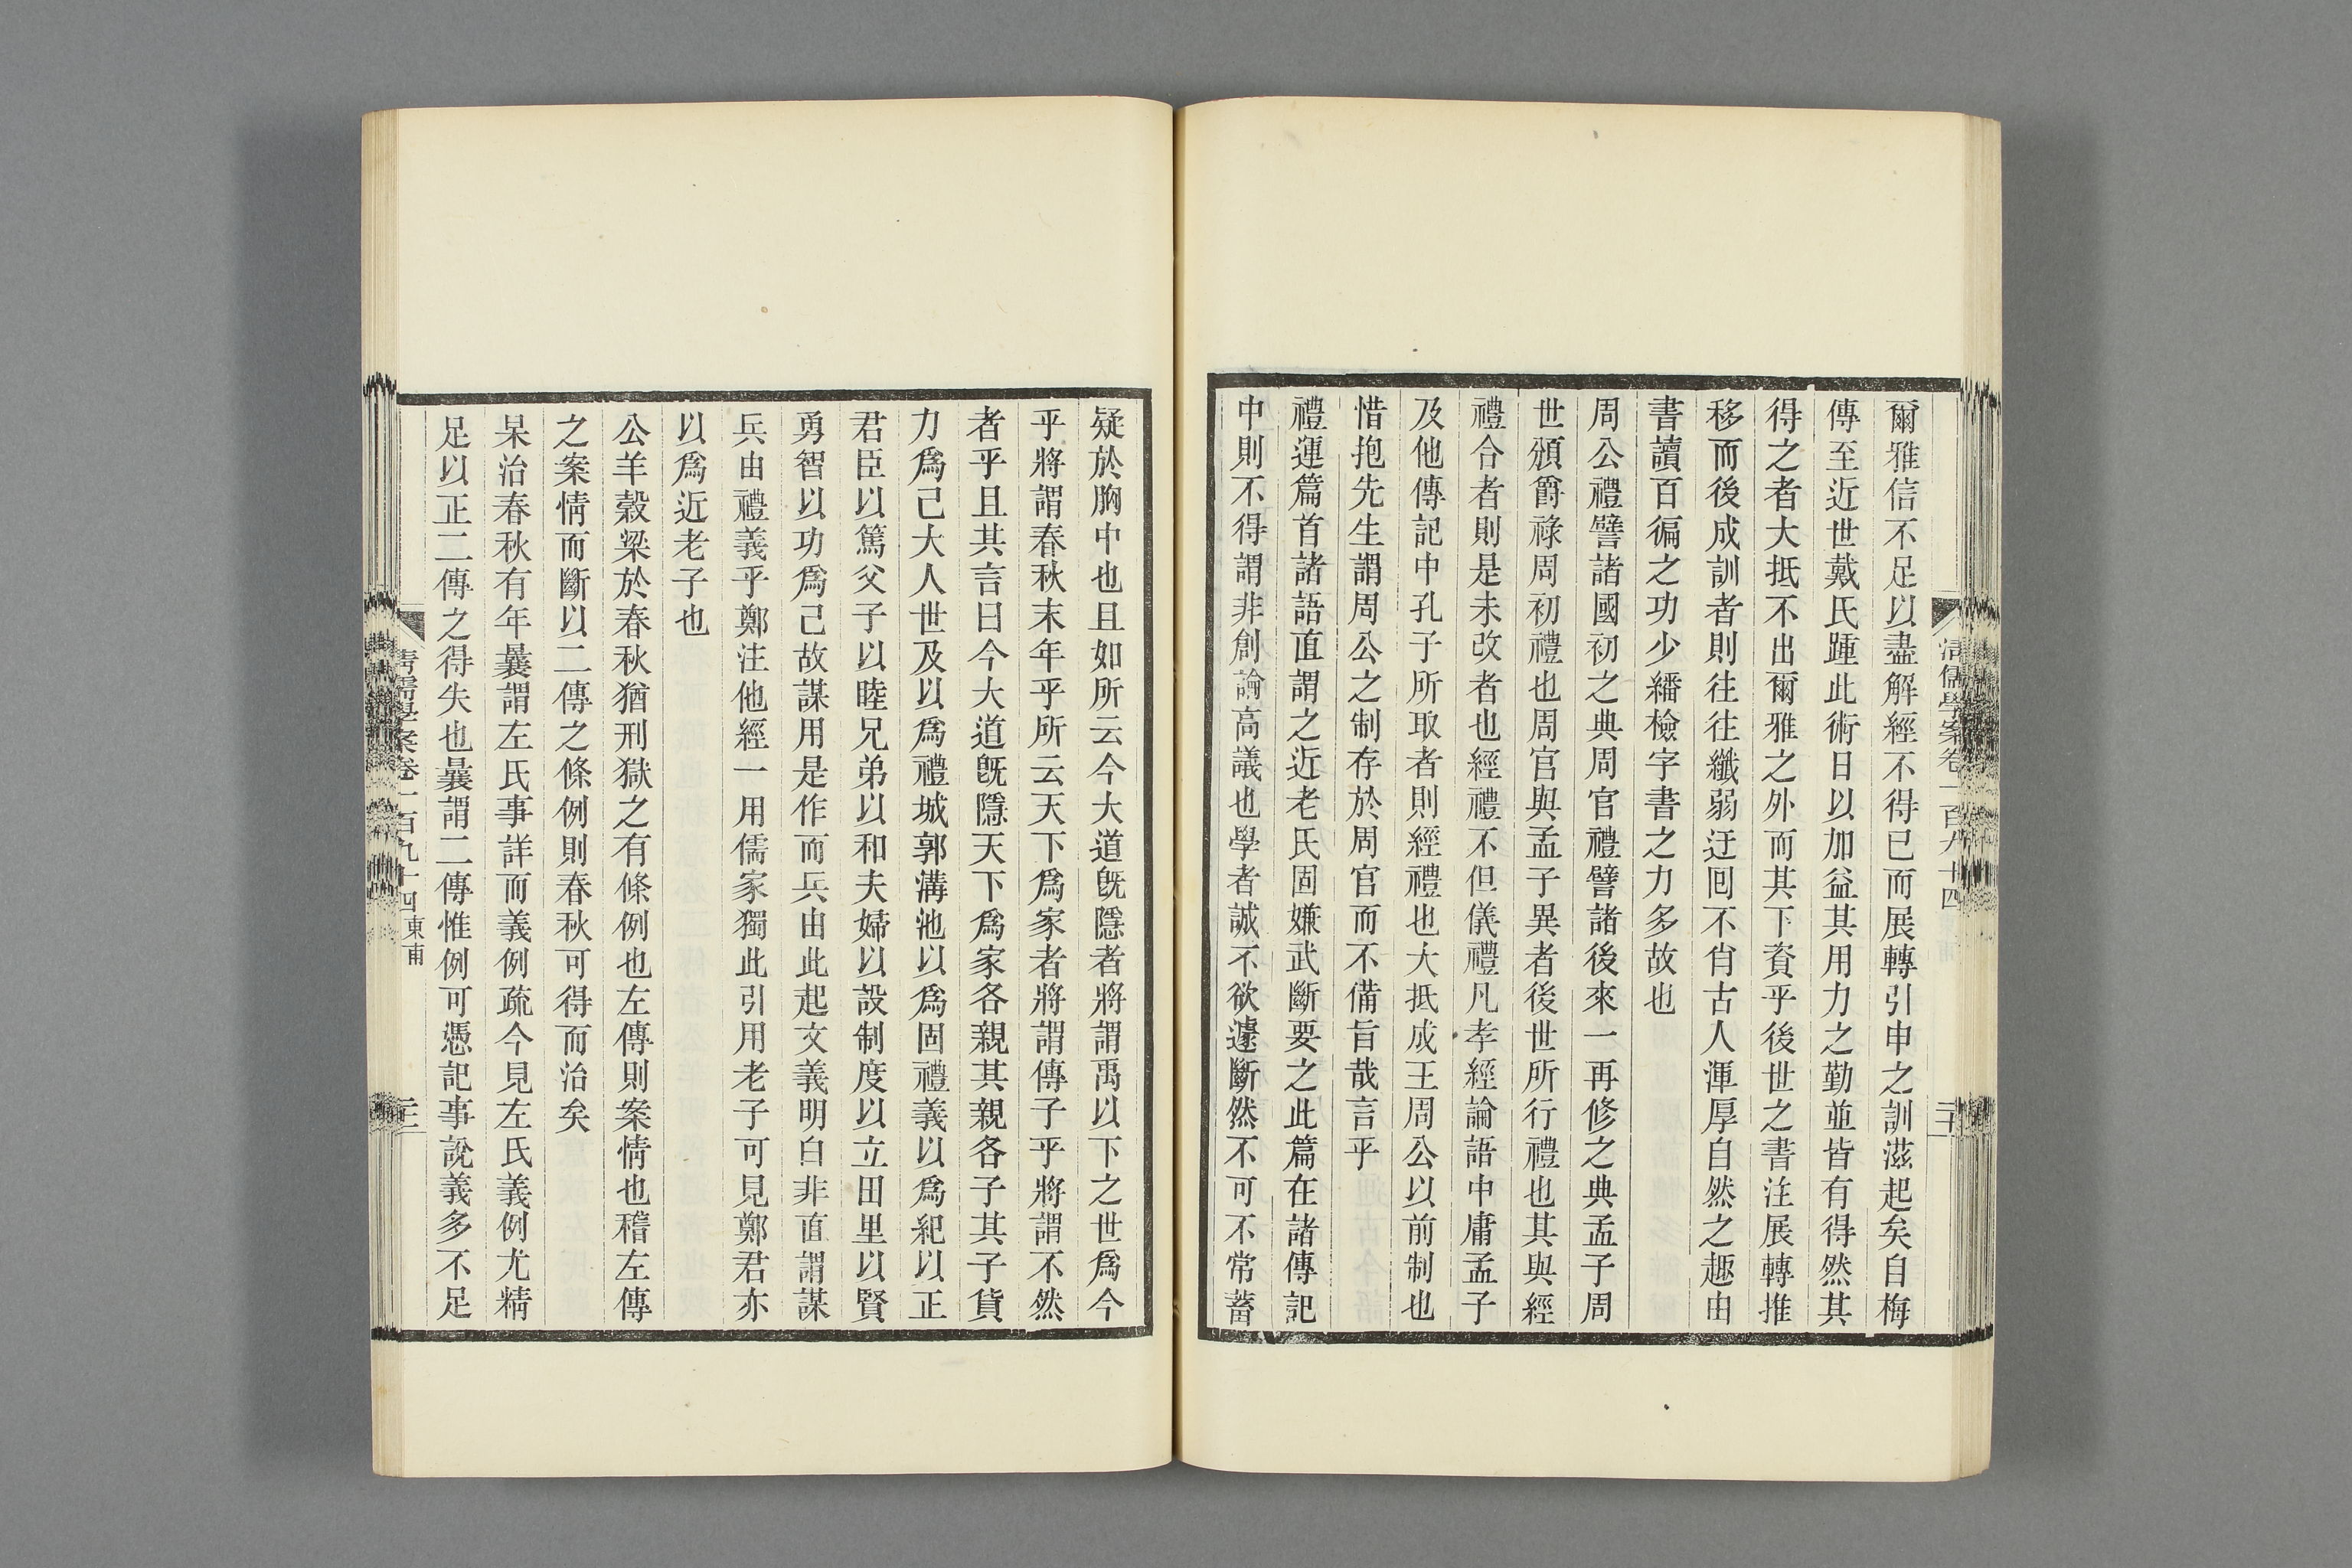 爾雅信不足以盡解經不得已而展轉引申之訓滋起矣自梅
傳至近世戴氏踵此術日以加益其用力之勤並皆有得然其
得之者大抵不出爾雅之外而其下資乎後世之書注展轉推
移而後成訓者則往往纖弱迂囘不肖古人渾厚自然之趣由
書讀百徧之功少繙檢字書之力多故也
周公禮譬諸國初之典周官禮譬諸後來一再修之典孟子周
世頒爵祿周初禮也周官與孟子異者後世所行禮也其與經
禮合者則是未改者也經禮不但儀禮凡孝經論語中庸孟子
及他傳記中孔子所取者則經禮也大抵成王周公以前制也
惜抱先生謂周公之制存於周官而不備旨哉言乎
禮運篇首諸語直謂之近老氏固嫌武斷要之此篇在諸傳記
中則不得謂非創論高議也學者誠不欲遽斷然不可不常蓄
清儒學案卷一百九十四
二十
疑於胸中也且如所云今大道旣隱者將謂禹以下之世爲今
乎將謂春秋末年乎所云天下爲家者將謂傳子乎將謂不然
者乎且其言曰今大道旣隱天下爲家各親其親各子其子貨
力爲己大人世及以爲禮城郭溝池以爲固禮義以爲紀以正
君臣以篤父子以睦兄弟以和夫婦以設制度以立田里以賢
勇智以功爲己故謀用是作而兵由此起文義明白非直謂謀
兵由禮義乎鄭注他經一用儒家獨此引用老子可見鄭君亦
以爲近老子也
公羊穀梁於春秋猶刑獄之有條例也左傳則案情也稽左傳
之案情而斷以二傳之條例則春秋可得而治矣
杲治春秋有年曩謂左氏事詳而義例疏今見左氏義例尤精
足以正二傳之得失也曩謂二傳惟例可憑記事說義多不足
清儒學案卷一百九十四 東甫